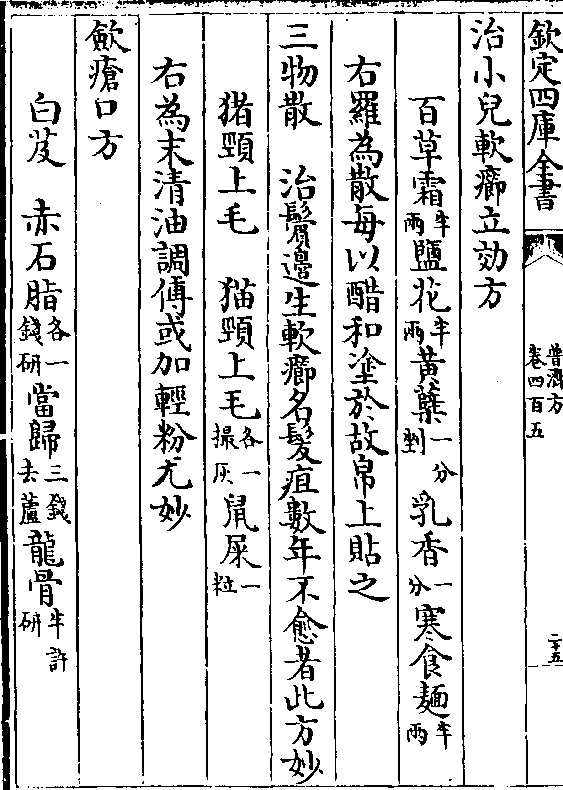 欽定四庫全書
普濟方
卷四百五
二十五
治小兒軟癤立効方
百草霜半兩鹽花半兩黄蘗一分剉乳香一分寒食麵半兩
右羅為散每以醋和塗於故帛上貼之
三物散　治鬢邊生軟癤名髮疽數年不愈者此方妙
猪頸上毛　猫頸上毛各一撮灰鼠屎一粒
右為末清油調傅或加輕粉尤妙
歛瘡口方
白芨　赤石脂各一錢研當歸三錢去蘆龍骨半許研